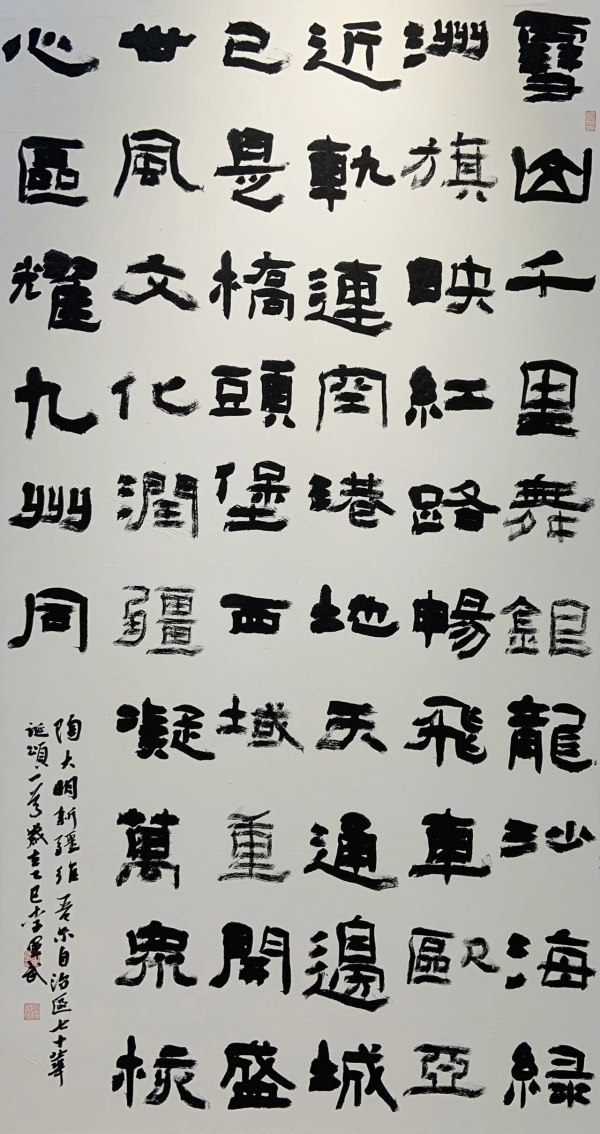 雪山千里舞銀龍沙海緑
洲旗映紅路暢飛車歐亞
近軌連空港地天通邊城
已是橋頭堡西域重開盛
世風文化潤疆凝萬衆核
心區耀九州同
陶大明新疆維吾尔自治區七十華
诞頌一首歲在乙巳李軍武